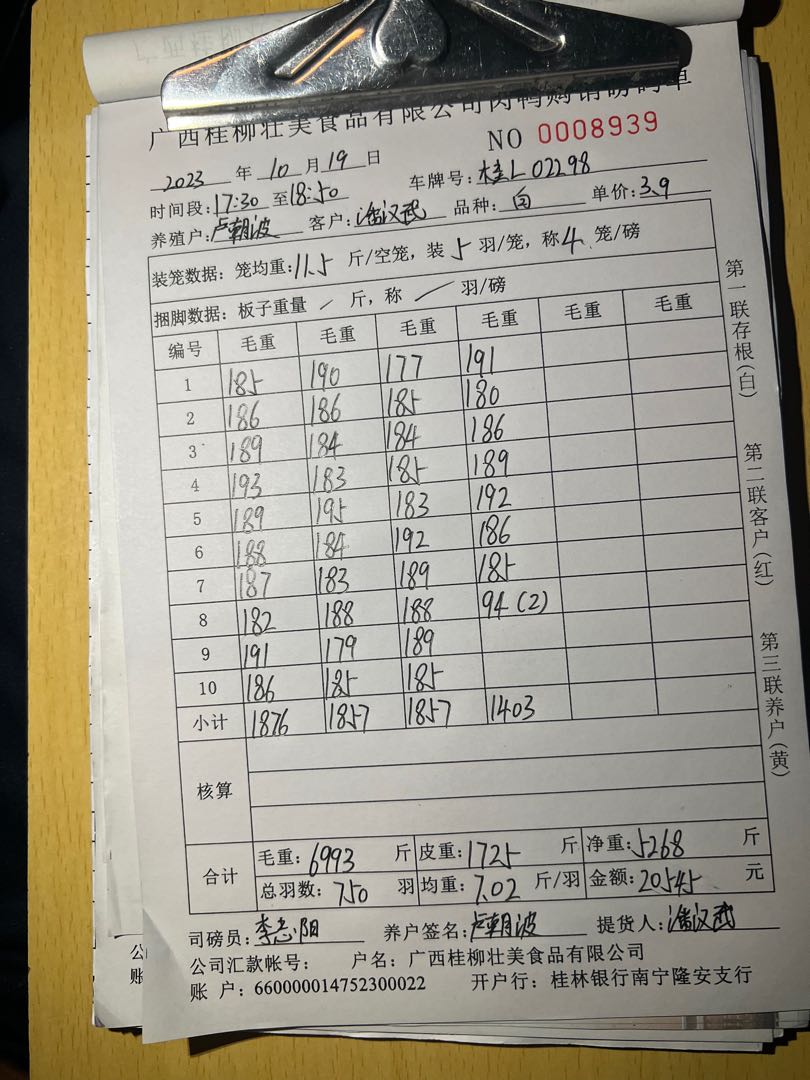 广西桂柳壮美食品有限公司肉鸭购销磅码单
NO 0008939
2023 年 10 月 19 日
时间段:17:30 至 18:50 车牌号:桂L 02298
养殖户:卢朝波 客户:潘汉武 品种:白 单价:3.9
装笼数据:笼均重:11.5 斤/空笼,装 5 羽/笼,称 4 笼/磅
捆脚数据:板子重量 / 斤,称 / 羽/磅
编号 毛重 毛重 毛重 毛重 毛重 毛重
1 185 190 177 191
2 186 186 185 180
3 189 184 184 186
4 193 183 185 189
5 189 195 183 192
6 188 184 192 186
7 187 183 189 185
8 182 188 188 94 (2)
9 191 179 189
10 186 185 185
小计 1876 1857 1857 1403
核算
合计 毛重:6993 斤 皮重:1725 斤 净重:5268 斤
总羽数:750 羽 均重:7.02 斤/羽 金额:20545 元
司磅员:李志阳 养户签名:卢朝波 提货人:潘汉武
公司汇款帐号: 户名:广西桂柳壮美食品有限公司
账 户:660000014752300022 开户行:桂林银行南宁隆安支行
第一联存根(白)
第二联客户(红)
第三联养户(黄)